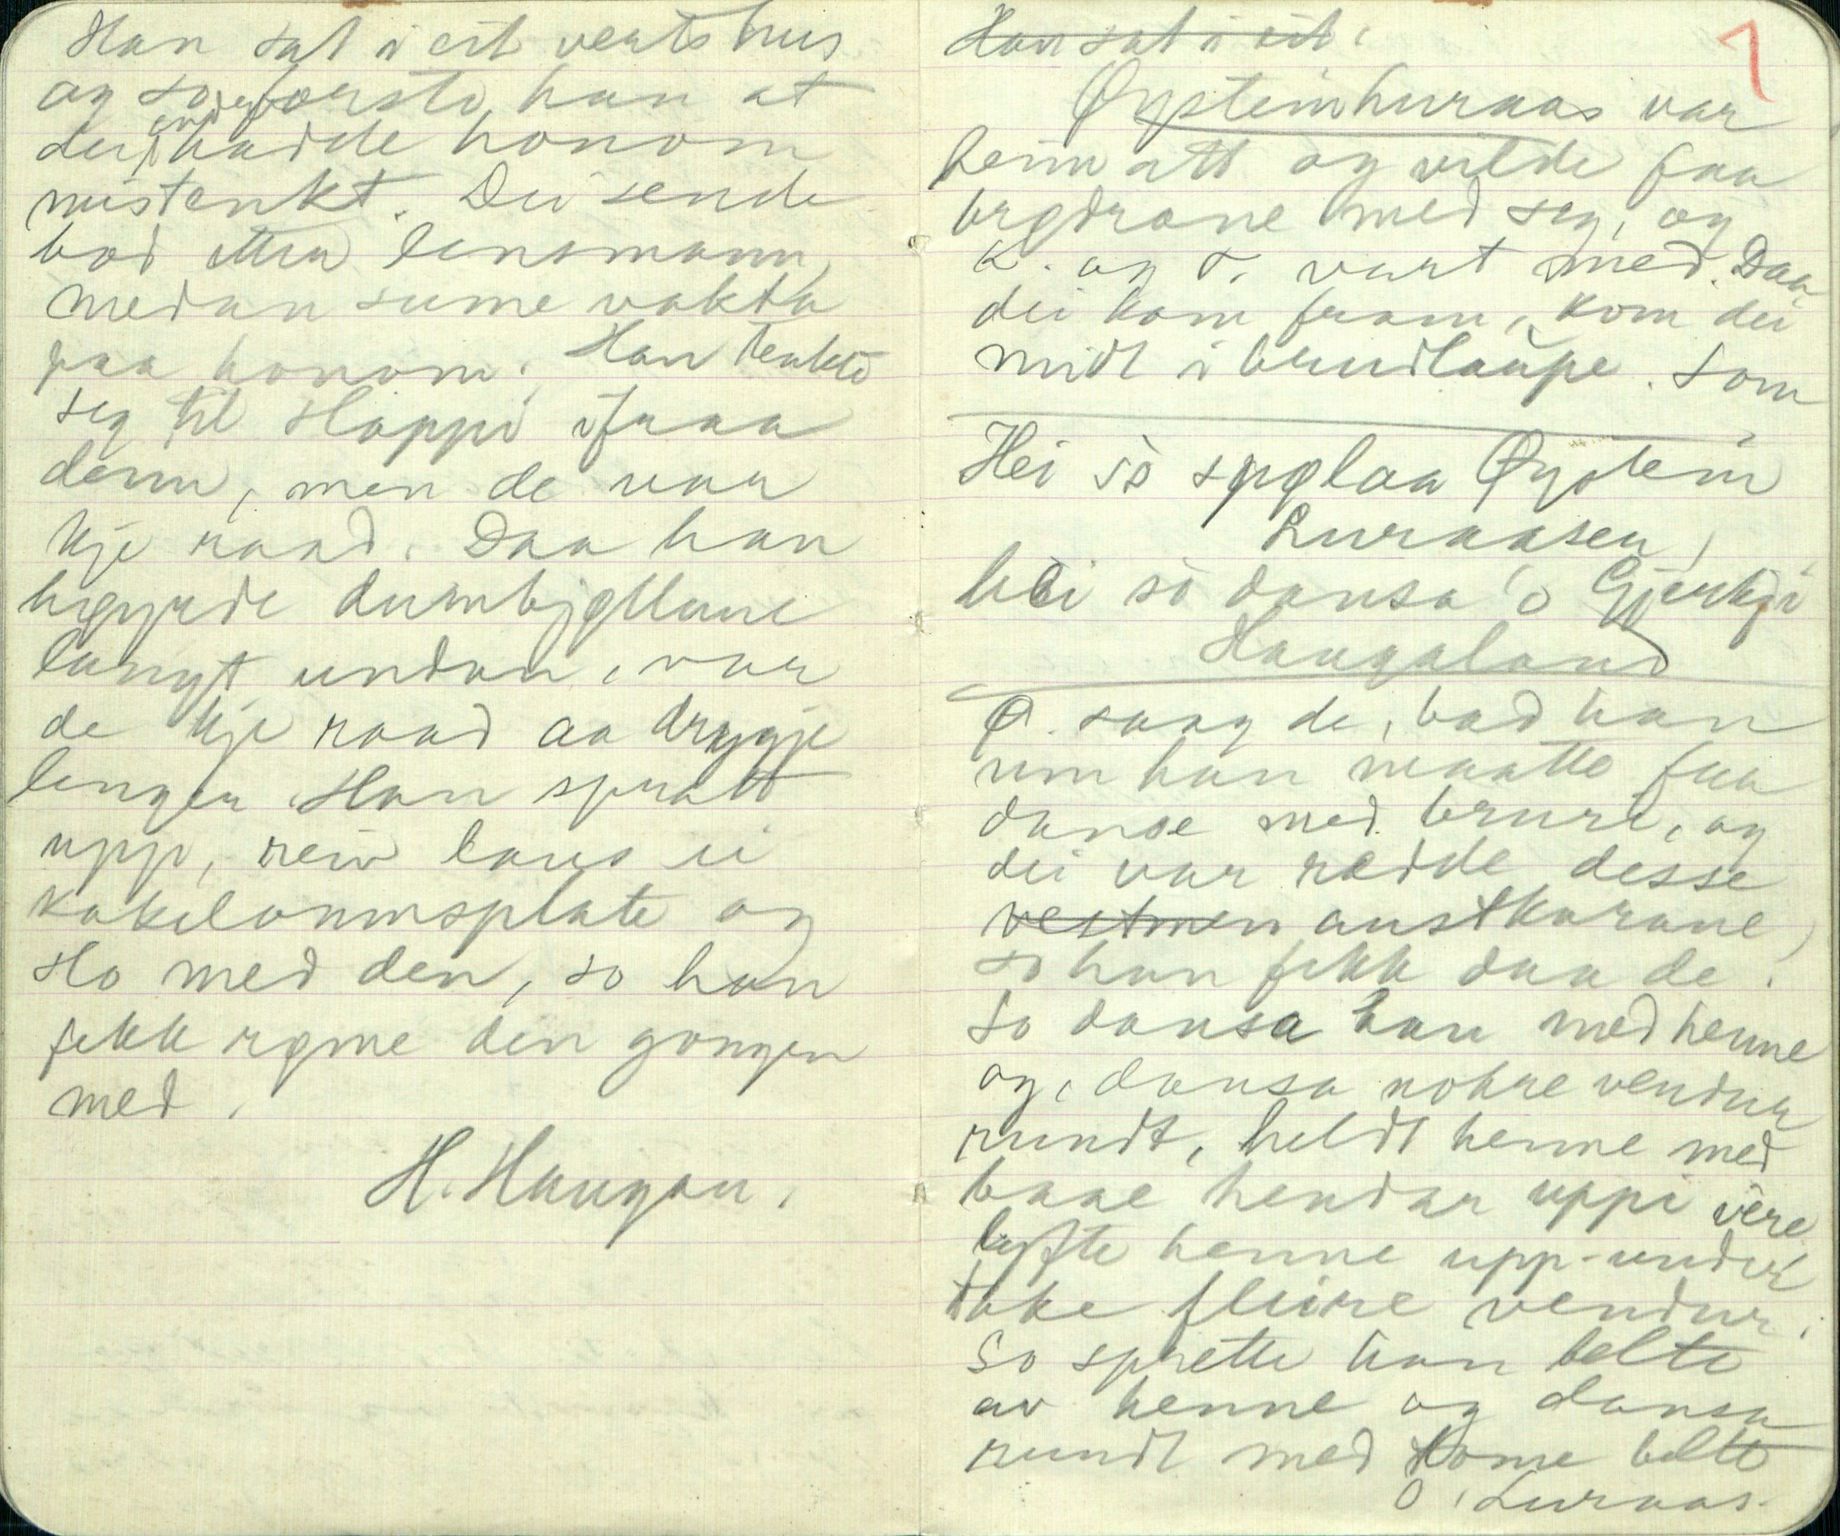 Han sat i eit vertshus
og so forsto han at
dei hadde honom
mistenkt. Dei sende
bod etter lensmann,
medan sume vakta
paa honom. Han tenkte
seg til sleppi ifraa
deim, men de var
kje raad. Daa han
høyrde dumbjøllune
langt undan, var
de kje raad aa drygje
lenger. Han spratt
upp, reiv laus ei
kakelomnsplate og
slo med den, so han
fekk røme den gongen
med.
H. Haugan.
Han sat i eit.
1
Øystein Luraas var
heim att og vilde faa
brødrane med seg, og
K. og T. vart med. Daa
dei kom fram, kom dei
midt i brudlaupe. Som
Hei so spølaa Øystein
Luraasen,
hei so dansa 'o Gjertrji
Haugaland
Ø. saag de, bad han
um han maatte faa
danse med bruri, og
dei var rædde desse
vestmen austkarane,
so han fekk daa de.
So dansa han med henne
og, dansa nokre vendur
rundt, heldt henne med
baae hendar uppi vêre
lyfte henne upp-under
take fleire vendur.
So sprette han belte
av henne og dansa
rundt med some belte
Ø. Luraas.